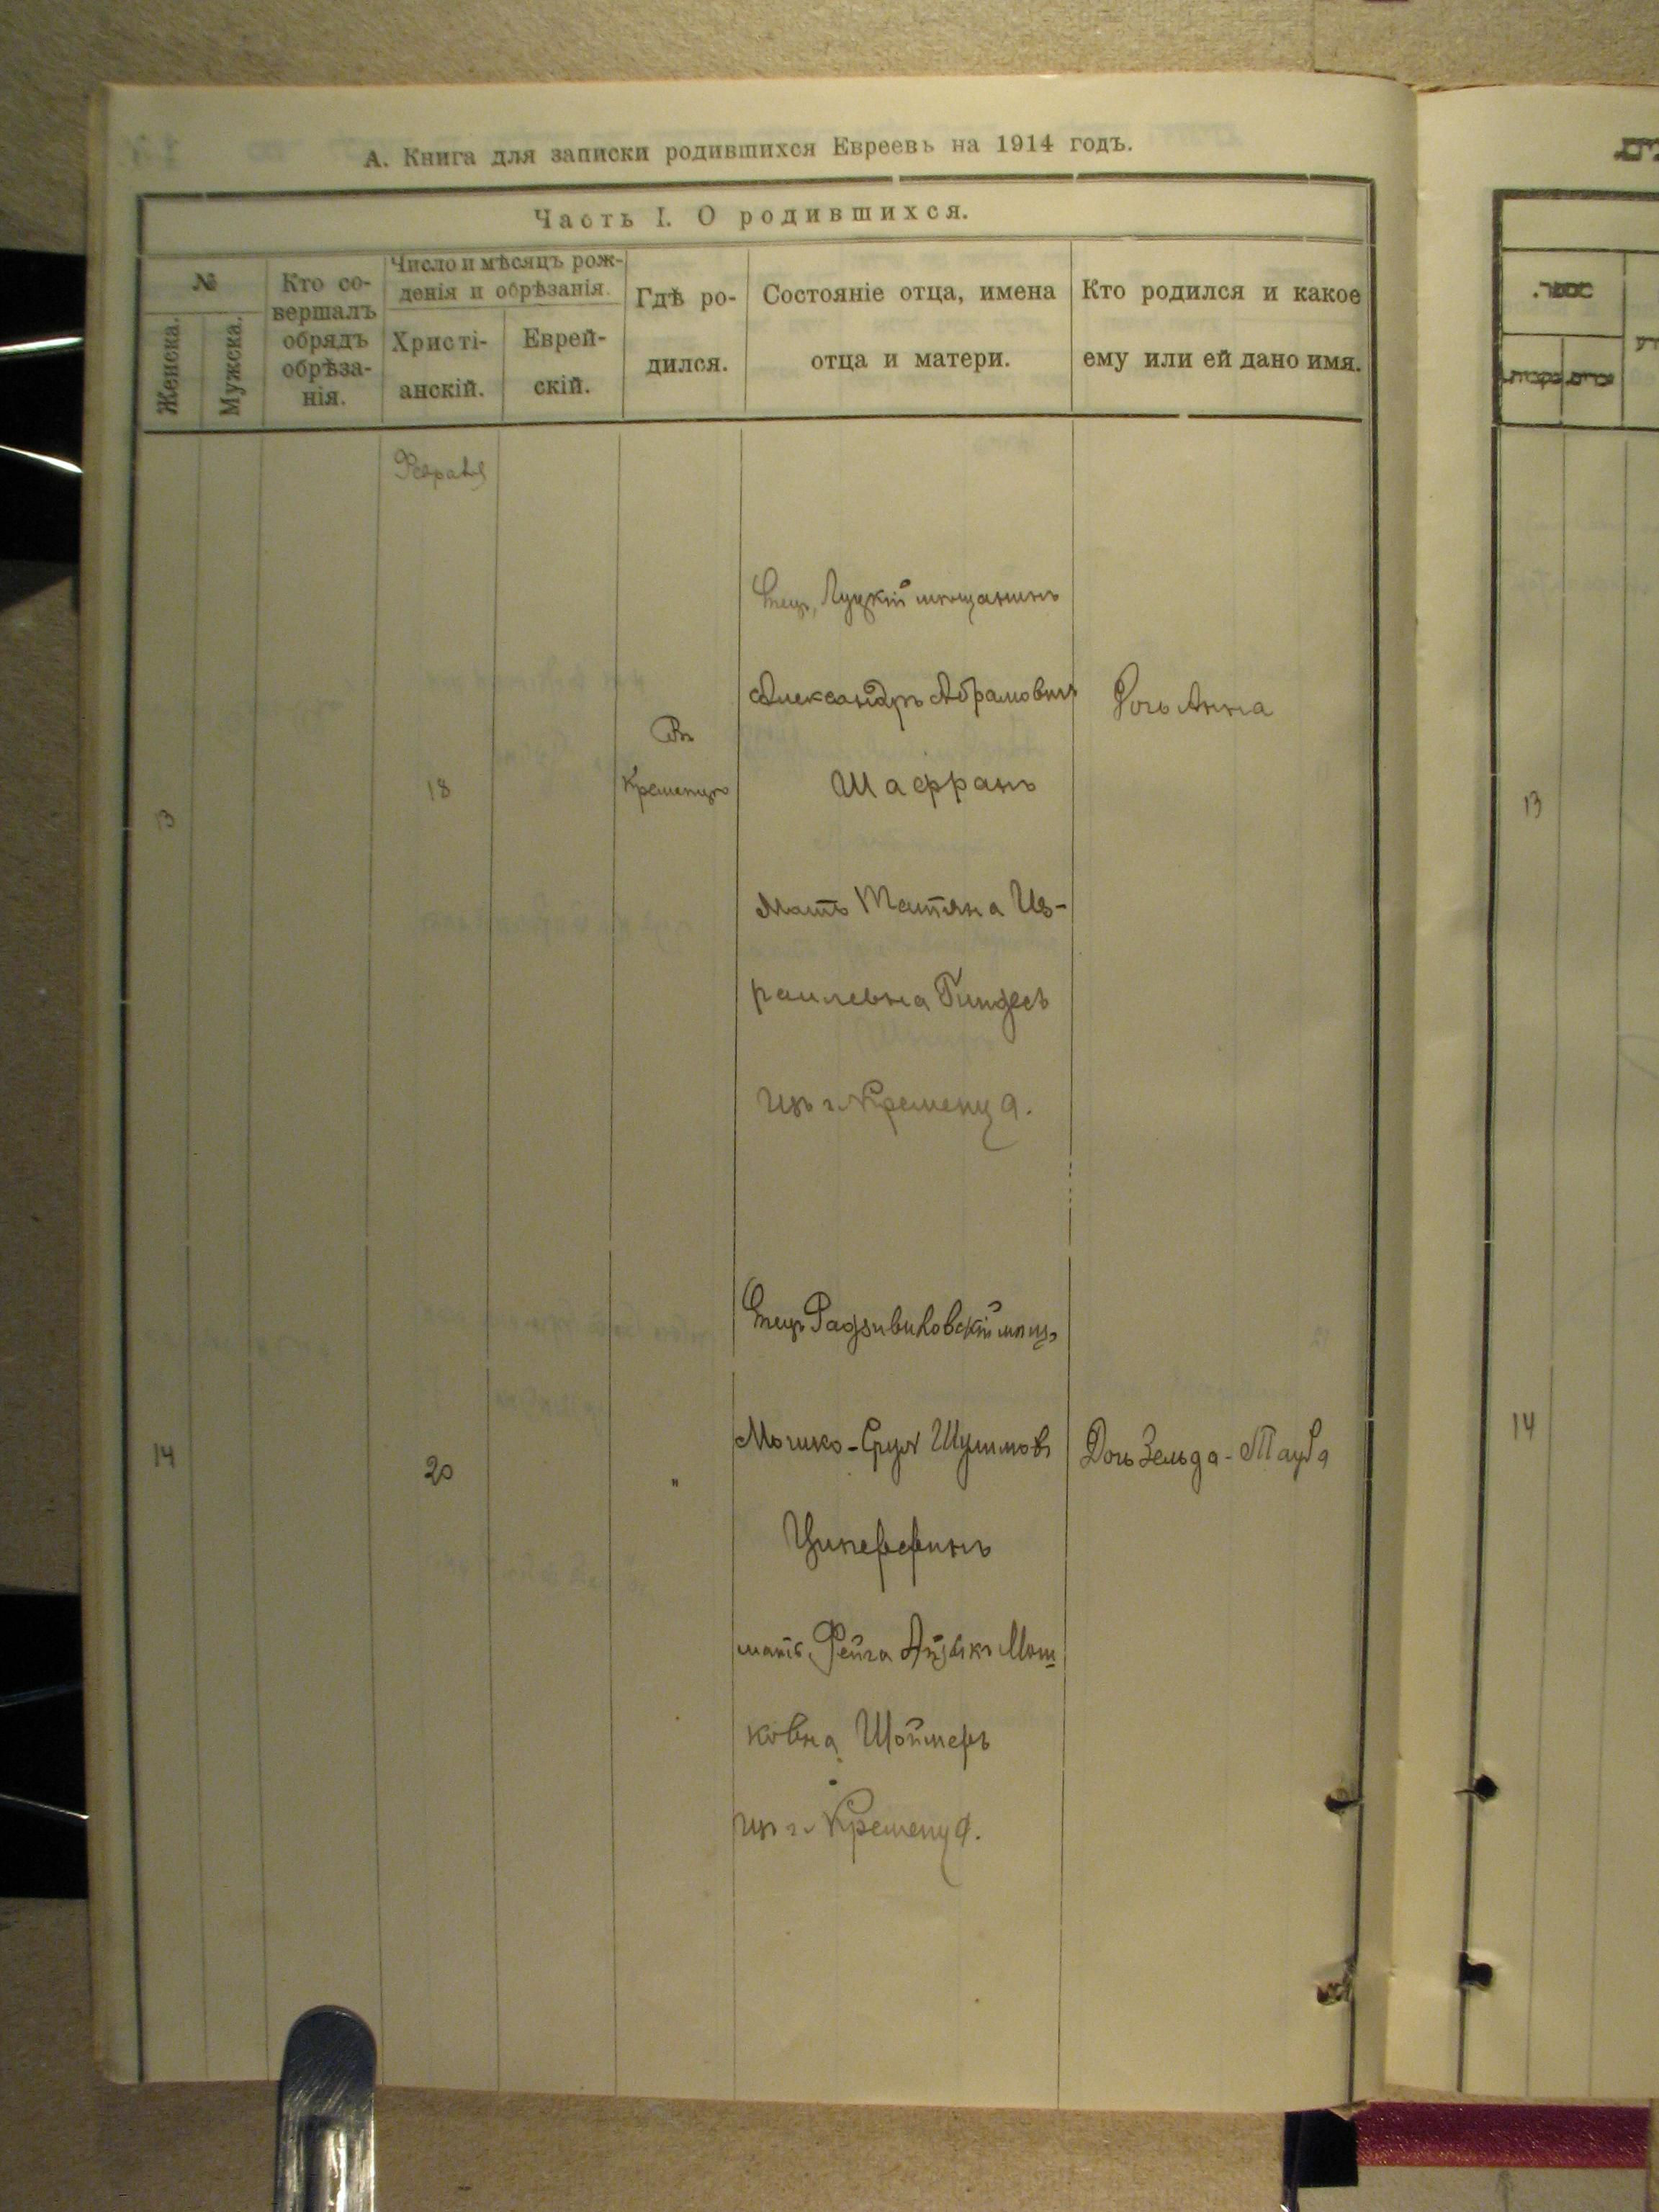 А. Книга для записки родившихся Евреевъ на 1914 годъ.
Часть I. О родившихся.
№
Женска.
Мужска.
Кто со-
вершалъ
обрядъ
обрѣза-
нія.
Число и мѣсяцъ рож-
денія и обрѣзанія.
Христі-
анскій.
Еврей-
скій.
Гдѣ ро-
дился.
Состояніе отца, имена
отца и матери.
Кто родился и какое
ему или ей дано имя.
Февраля
13
18
Въ
Кременцѣ
Отецъ, Луцкій мѣщанинъ
Александръ Абрамовичъ
Шафранъ
Мать Татяна Из-
раилевна Гиндесъ
изъ г. Кременца.
Дочь Анна
14
20
"
Отецъ Радзивиловскій мѣщ.
Мошко-Сруль Шулимовъ
Циперфинъ
мать, Фейга Айзикъ Мош
ковна Шоймеръ
изъ г. Кременца.
Дочь Зельда-Тауба
13
14